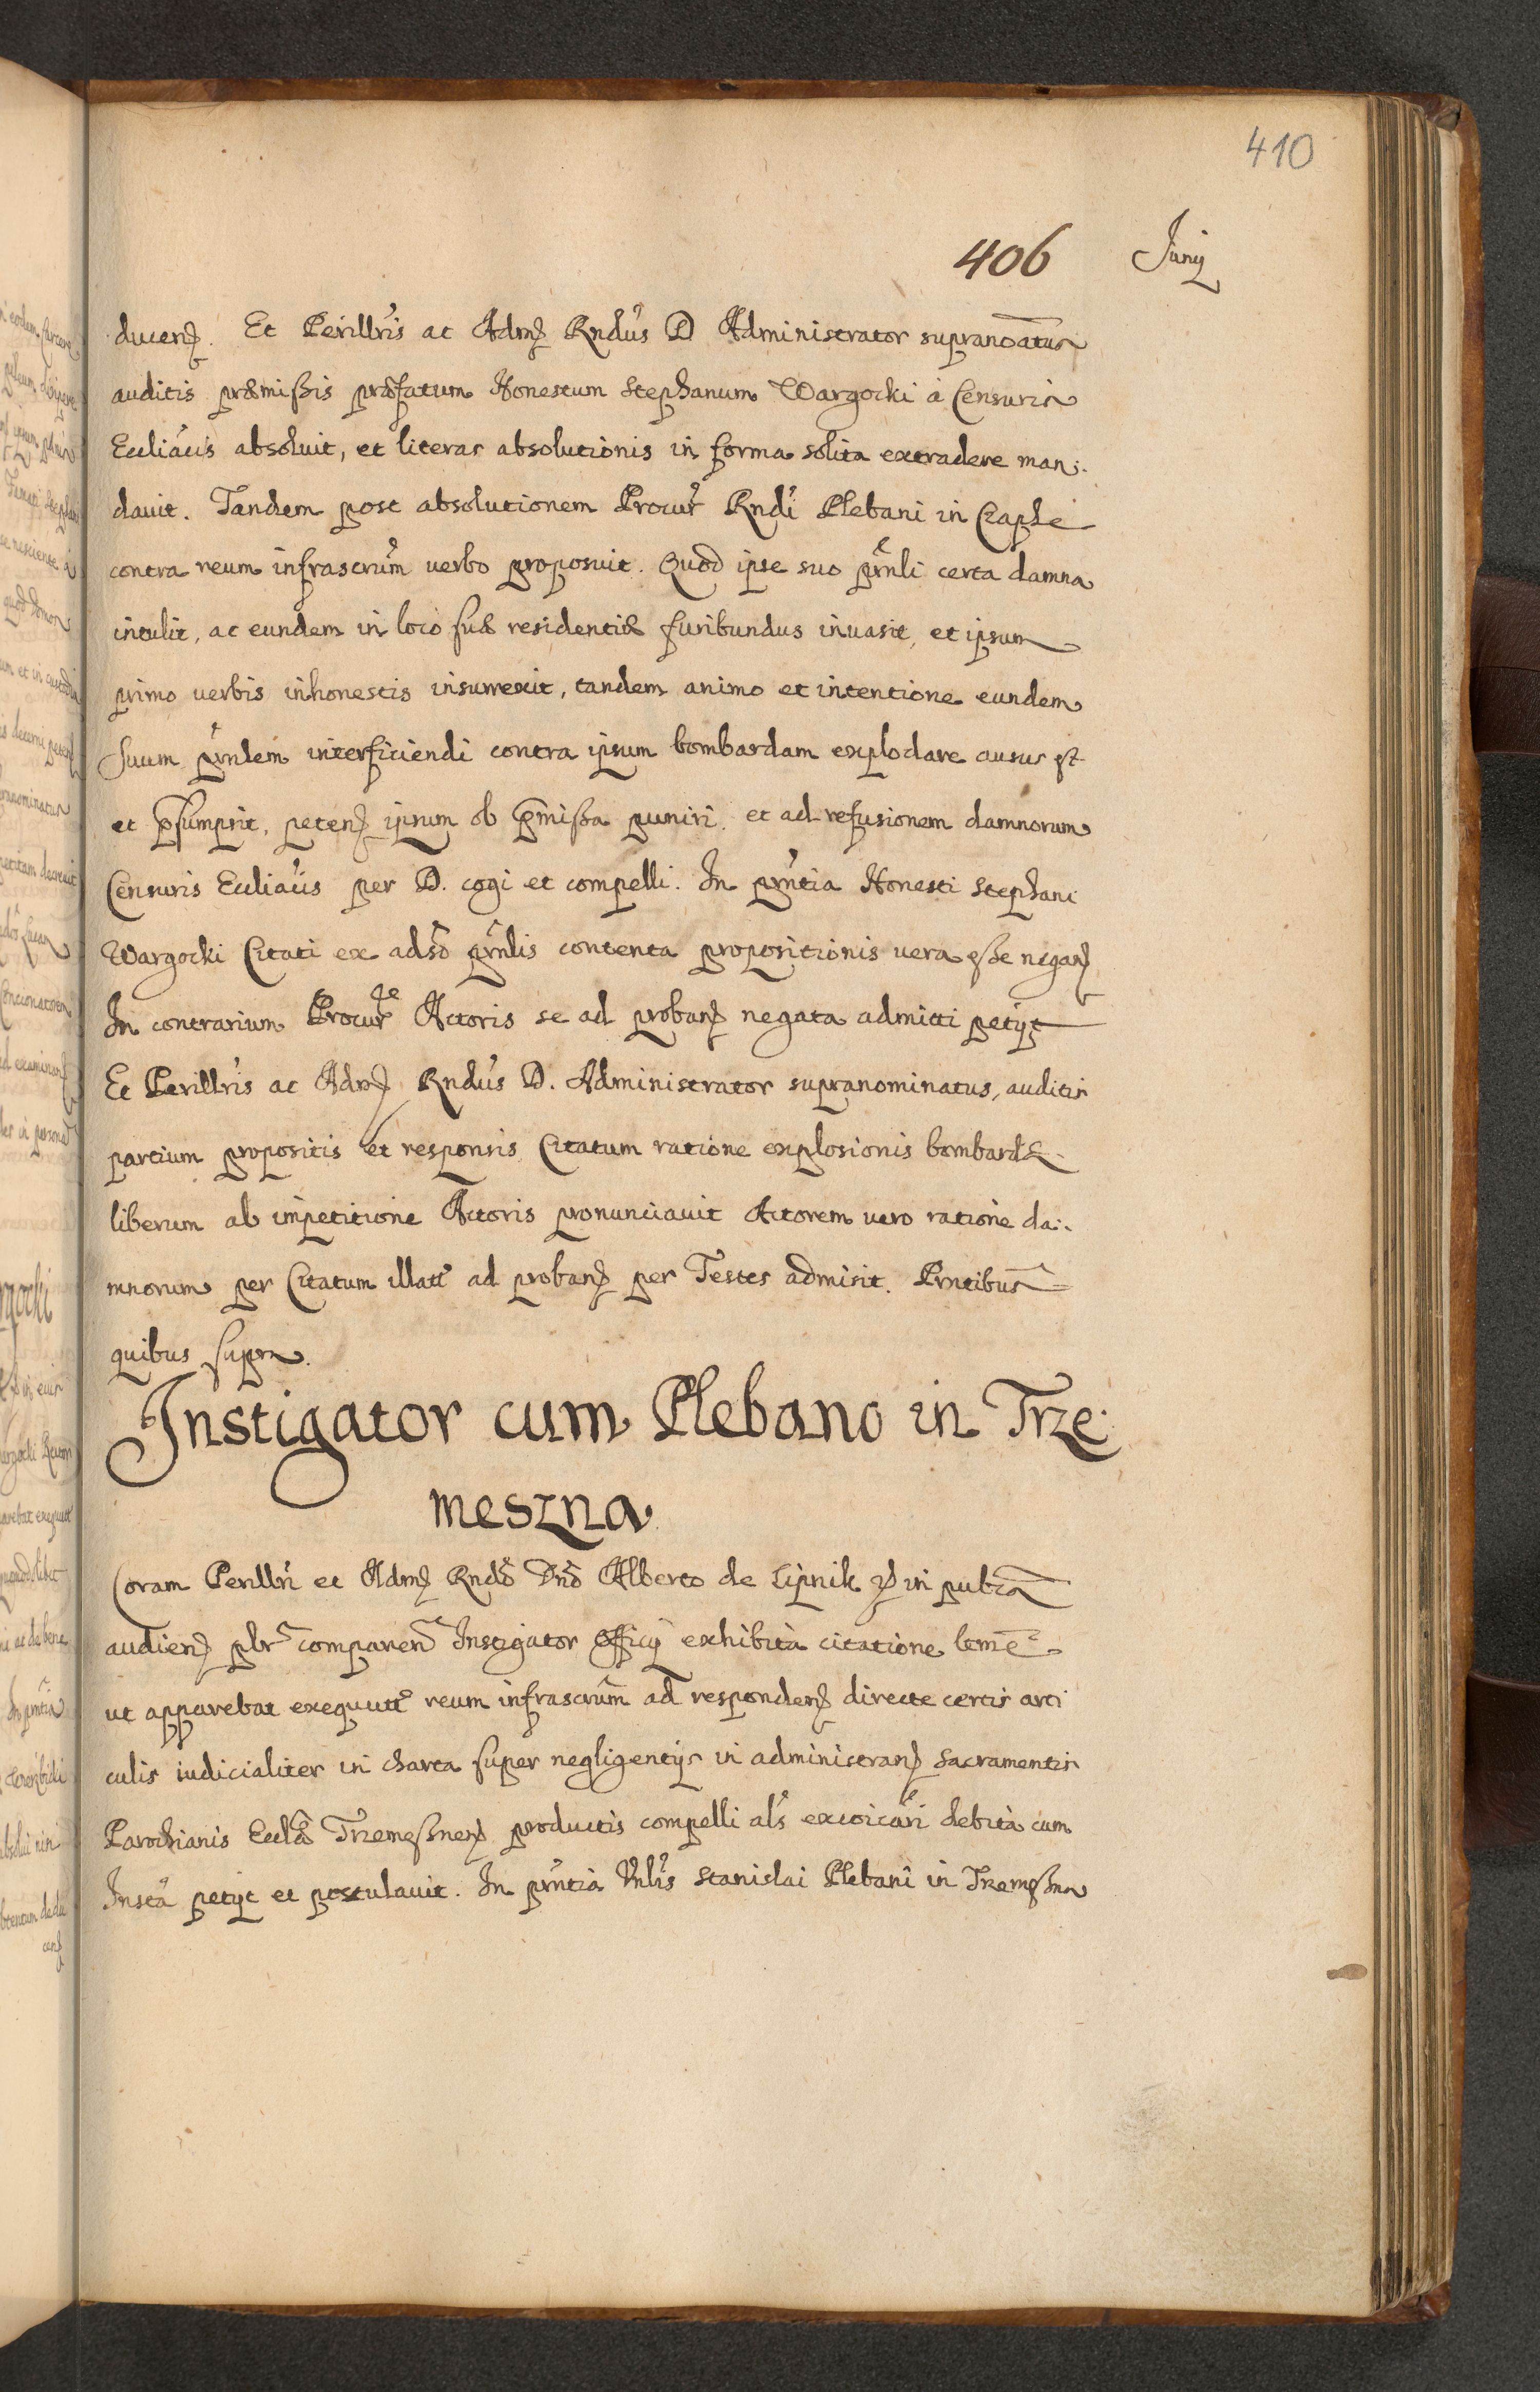 410
406 Junij
ducen̄. Et Perillris ac Adm̄ Rndus D Administrator supranoatus
auditis præmissis præfatum Honestum Stephanum Wargocki a Censuris
Eccliacis absoluit, et literas absolutionis in forma solita extradere man:
dauit. Tandem post absolutionem Procur Rndi Plebani in Czaple
contra reum infrascrum verbo proposuit. Quod ipse suo prnli certa damna
intulit, ac eundem in loco suæ residentiæ furibundus inuasit, et ipsum
primo verbis inhonestis insurrexit, tandem animo et intentione eundem
suum prnlem interficiendi contra ipsum bombardam explodare ausus est
et psumpsit, peten̄ ipsum ob pmissa puniri et ad refusionem damnorum
Censuris Eccliacis per D. cogi et compelli. In prntia Honesti Stephani
Wargocki Citati ex adso prnlis contenta propositionis vera esse negan̄
In contrarium Procur Actoris se ad proban̄ negata admitti petijt
Et Perillris ac Adm̄ Rndus D. Administrator supranominatus, auditis
partium propositis et responsis Citatum ratione explosionis bombardæ
liberum ab impetitione Actoris pronunciauit Actorem vero ratione da:
mnorum per Citatum illatt ad proban̄ per Testes admisit. Prntibus
quibus supra.
Instigator cum Plebano in Trze:
meszna
Coram Perillri et Adm̄ Rndo Dno Alberto de Lipnik in publca
audien̄ plr comparen Instigator Officij exhibita citatione ltme
ut apparebat exequutt reum infrascrum ad responden̄ directe certis arti
culis iudicialiter in charta super negligentijs in administran̄ Sacramentis
Parochianis Eccla Trzemesznen̄ productis compelli als excoicari debita cum
Insta petijt et postulauit. In prntia Vnlis Stanislai Plebani in Trzemeszna